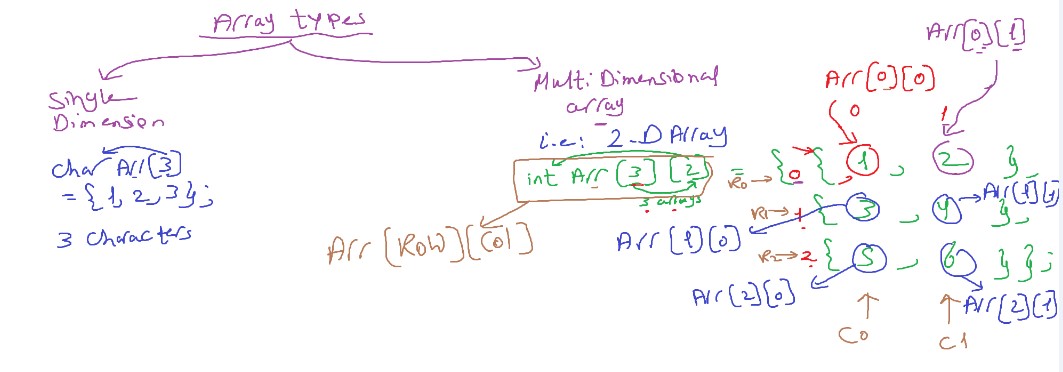 Array types
Single
Dimension
char Arr[3]
= {1, 2, 3};
3 characters
Multi Dimensional
array
i.e: 2-D Array
int Arr [3] [2] =
3 arrays
Arr [Row][Col]
Arr[0][1]
Arr[0][0]
0 1
R0→ 0 { { 1 , 2 },
R1→ 1 { 3 , 4 },
R2→ 2 { 5 , 6 } };
Arr[1][1]
Arr [1][0]
Arr[2][0]
Arr[2][1]
C0 C1